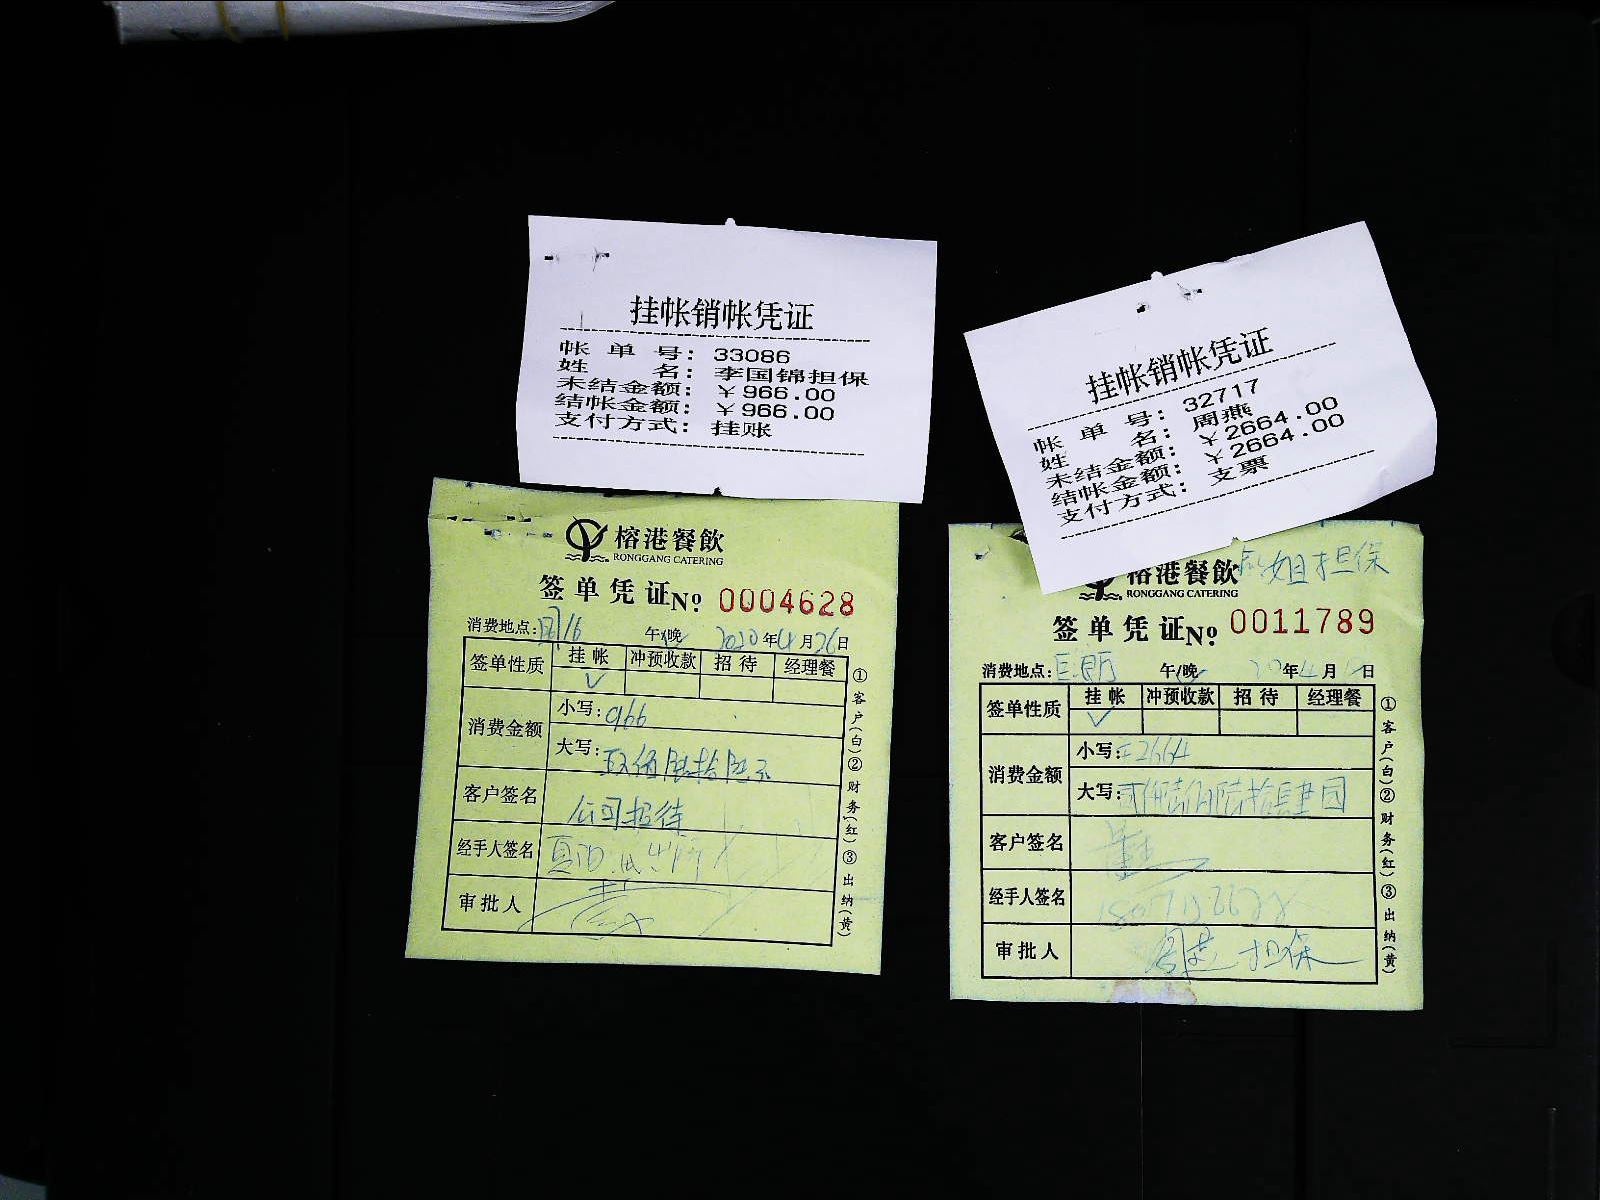 挂帐销帐凭证
帐单号：33086
姓名：李国锦担保
未结金额：￥966.00
结帐金额：￥966.00
支付方式：挂账
榕港餐飲
RONGGANG CATERING
签单凭证No 0004628
消费地点： 午/晚 2020年4月26日
签单性质 挂帐 冲预收款 招待 经理餐
✓
消费金额 小写：966
大写：玖佰陆拾陆元
客户签名 公司招待
经手人签名
审批人
①客户(白)②财务(红)③出纳(黄)
挂帐销帐凭证
帐单号：32717
姓名：周燕
未结金额：￥2664.00
结帐金额：￥2664.00
支付方式：支票
姐担保
榕港餐飲
RONGGANG CATERING
签单凭证No 0011789
消费地点： 午/晚 20年4月日
签单性质 挂帐 冲预收款 招待 经理餐
✓
消费金额 小写：2664
大写：仟陆佰陆拾肆圆
客户签名
经手人签名
审批人 周燕担保
①客户(白)②财务(红)③出纳(黄)